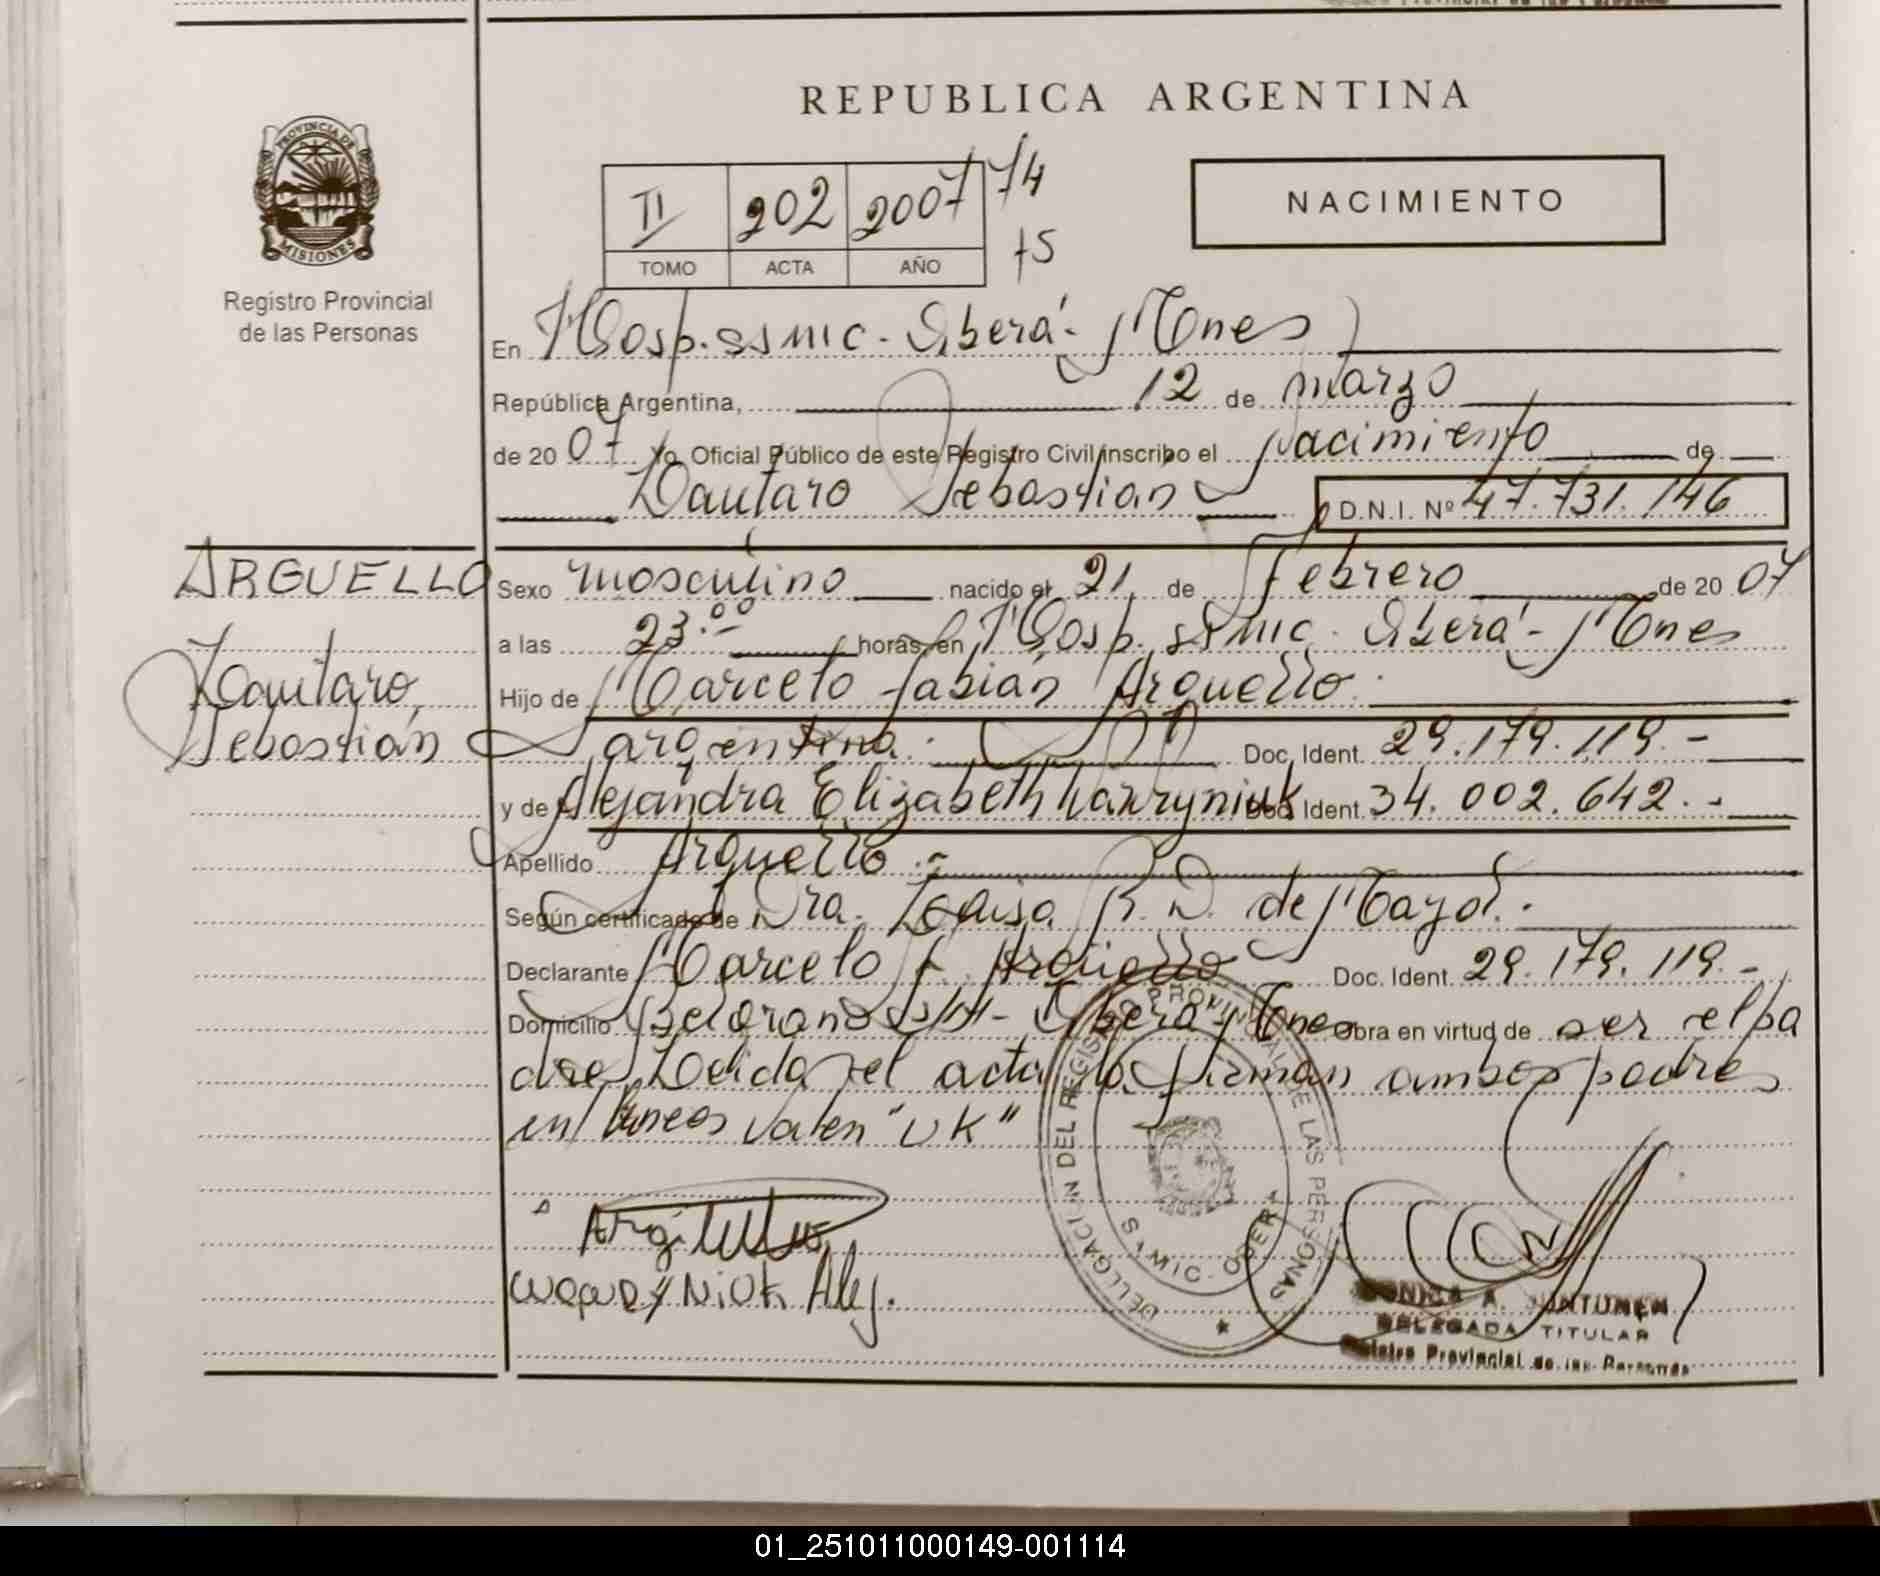 REPUBLICA ARGENTINA
PROVINCIA DE
MISIONES
Registro Provincial
de las Personas
II 202 2007 74
TOMO ACTA AÑO 75
NACIMIENTO
En Hosp. SSMIC - Oberá - Mnes
República Argentina, 12 de marzo
de 20 07 Yo, Oficial Público de este Registro Civil inscribo el nacimiento de
Lautaro Sebastián D.N.I. Nº 47.731.146
ARGUELLO
Lautaro
Sebastián
Sexo masculino nacido el 21 de febrero de 20 07
a las 23.00 horas, en Hosp. SSMIC. Oberá - Mnes
Hijo de Marcelo Fabián Arguello.
argentina. Doc. Ident. 29.179.119.-
y de Alejandra Elizabeth Doc Ident. 34.002.642.-
Apellido Arguello.-
Según certificado de Dra. R. D. de
Declarante Marcelo F. Arguello Doc. Ident. 29.179.119.-
Domicilio Belgrano S/N - Oberá - Mnes Obra en virtud de ser el pa
dre Leida el acta la firman ambos padres
en lineas valen "UK"
DELEGACION DEL REGISTRO PROVINCIAL DE LAS PERSONAS
MIC. OBERA
Alej.
A.
DELEGADA TITULAR
Registro Provincial de las Personas
01_251011000149-001114